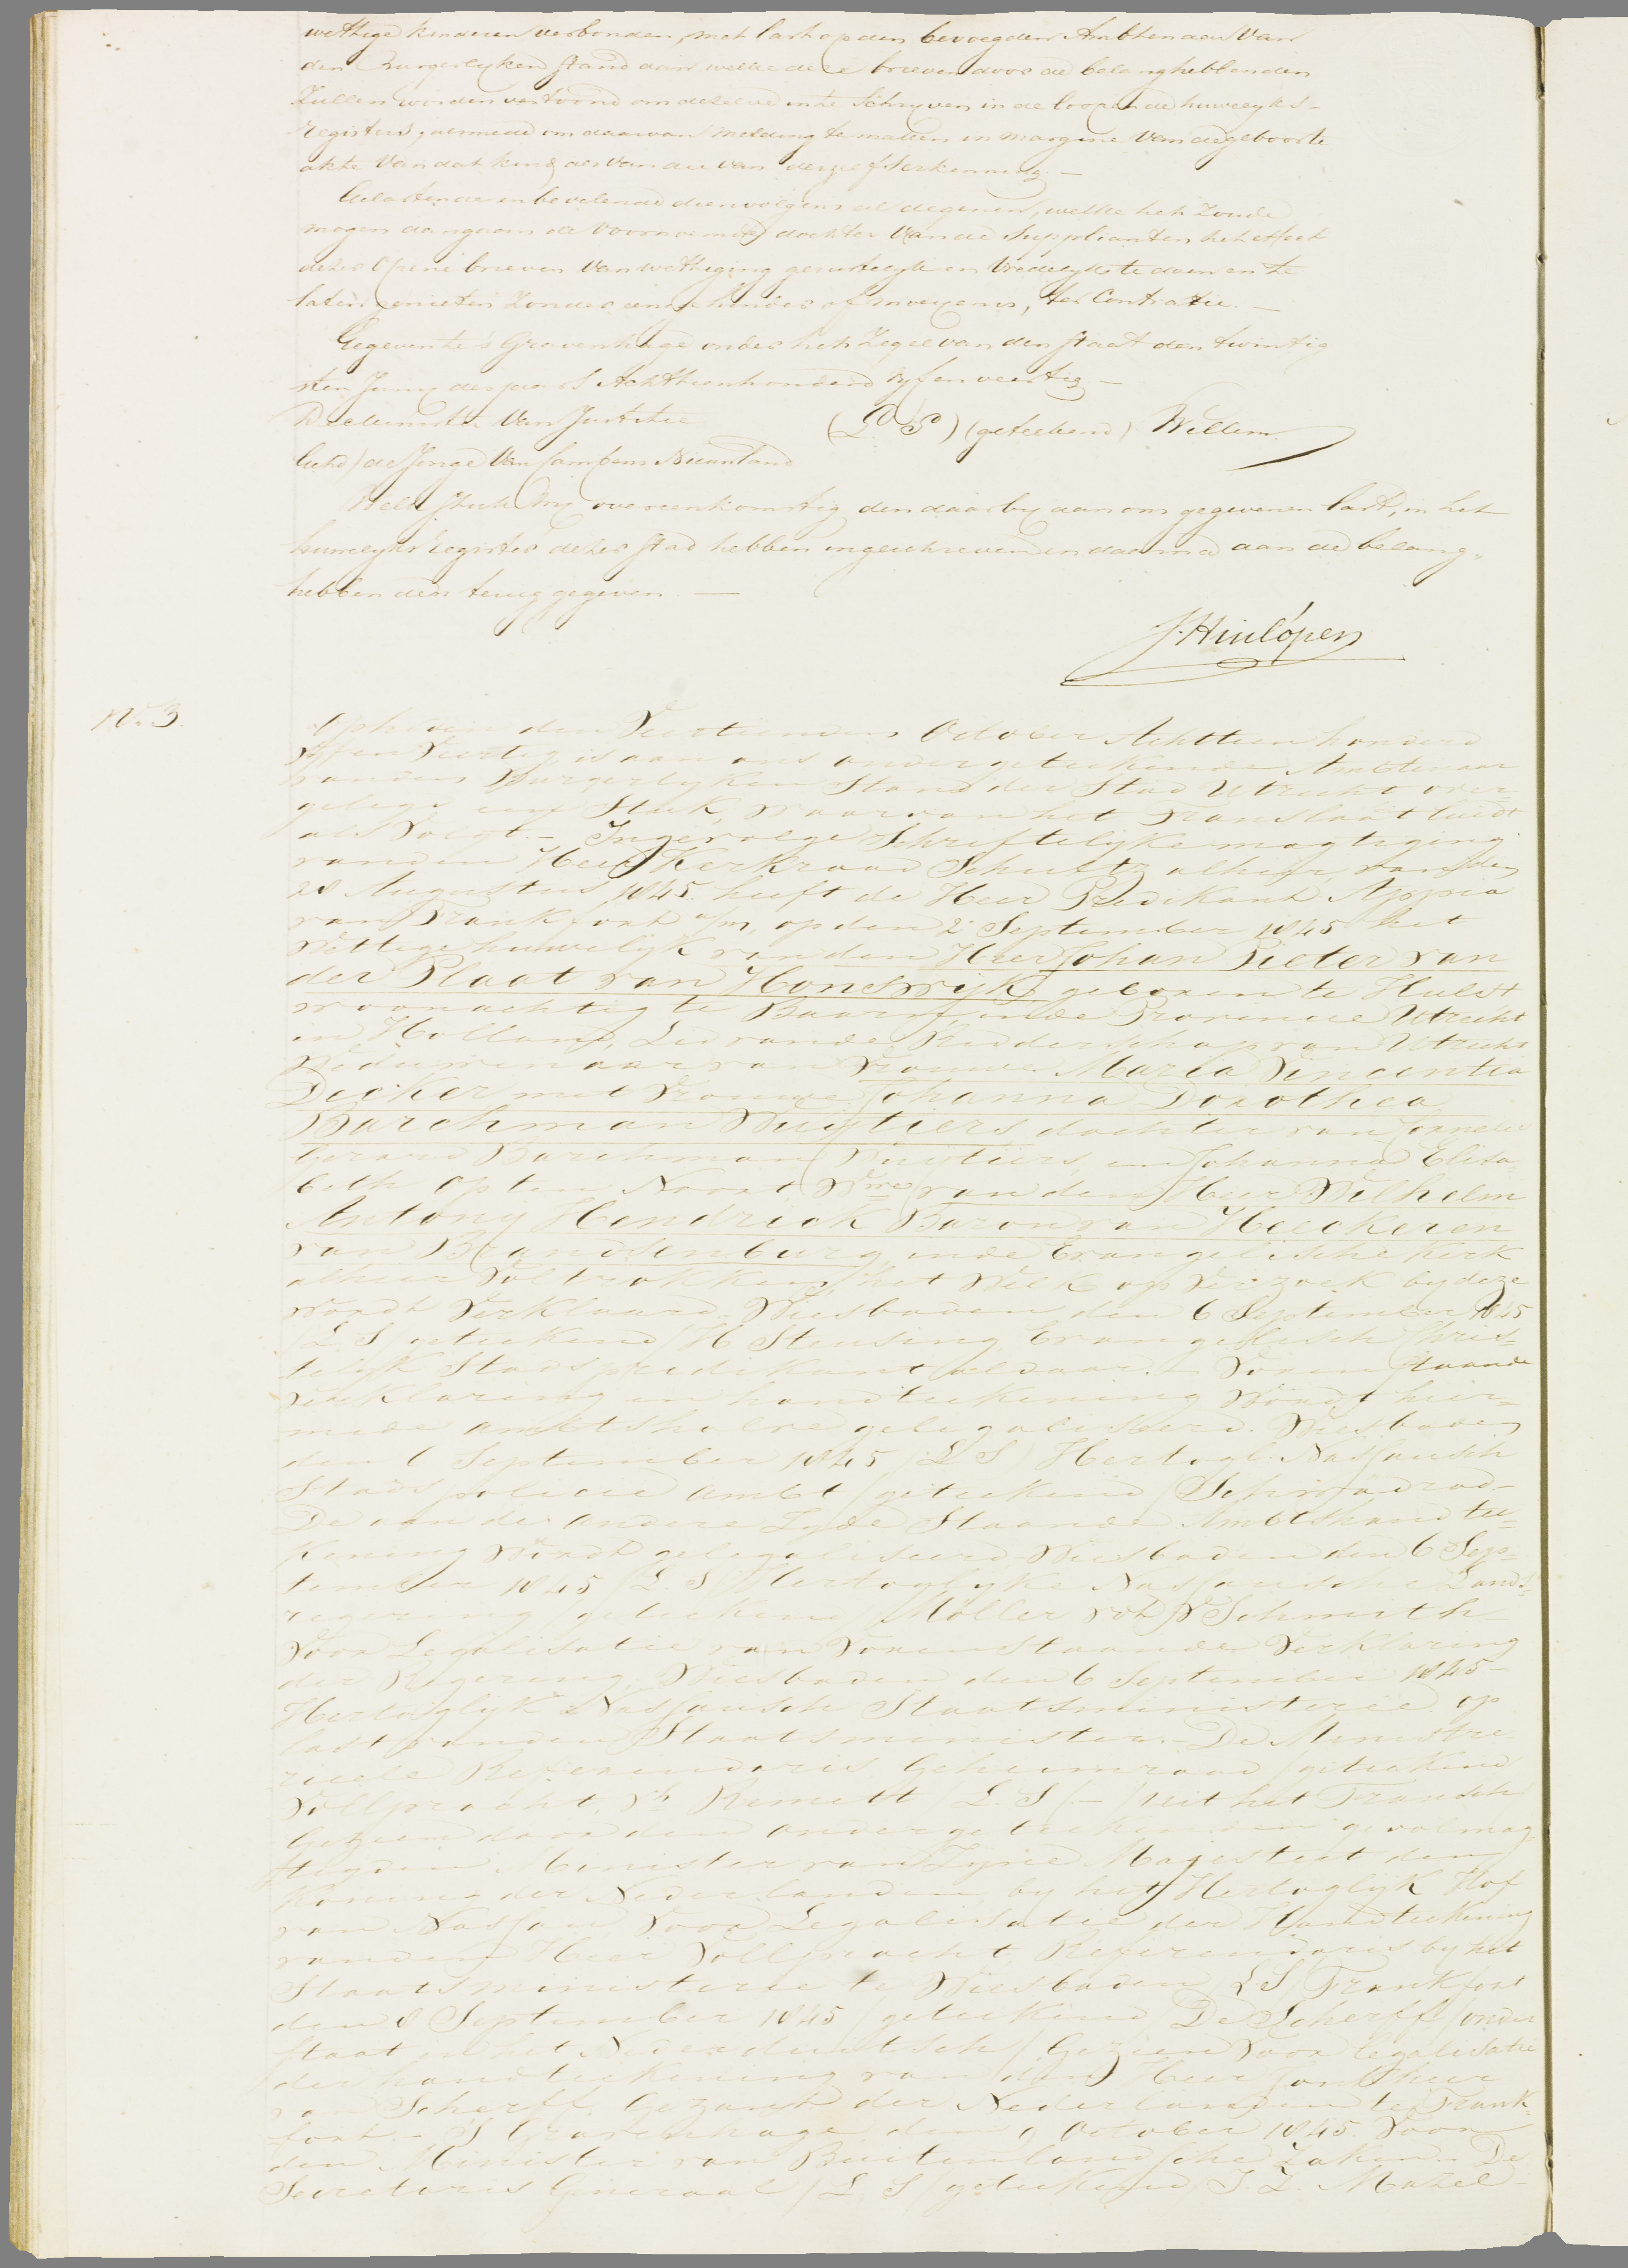 wettige kinderen verbonden, met last op den bevoegden Ambtenaar van
den Burgerlyken stand aan welke deze brieven door de belanghebbenden
Zullen worden vertoond om dezelve inte Schryven in de loopende huwelyks-
registers, alsmede om daarvan melding te maken in margine van de geboorte
akte van dat kind als van die van derzelfs erkenning -
Gelastende en bevelende dienvolgens al degenen, welke het Zoude
mogen aangaan de voornoemde dochter van de Supplianten het effect
dezer Opene brieven van wettiging gerustelyk en vredelyk te doen en te
laten genieten Zonder eenig hinder of moeyenis, ter Contrarie. -
Gegeven te 's Gravenhage onder het Zegel van den staat den twintig
sten Juny des jaars Achttienhonderd Vyf en veertig -
De Minister van Justitie (L. S.) (geteekend) Willem.
(gekd) de Jonge van Campens Nieuwland
Welk Stuk wy overeenkomstig den daarby aan ons gegevenen last, in het
huwelyks register dezer Stad hebben ingeschreven en daarna aan de belang-
hebbenden terug gegeven. -
J. Hinlópen
No. 3.
Op heden den Veertienden October Achttien honderd
Vyf en Veertig is aan ons ondergeteekende Ambtenaar
van den Burgerlyken Stand der Stad Utrecht over
gelegd een Stuk, waarvan het Translaat luidt
als Volgt. - Ingevolge Schriftelyke magtiging
van den Heer Kerkraad Schultz alhier van den
28 Augustus 1845. heeft de Heer Predikant Appia
van Frankfort a/m, op den 2 September 1845 het
Wettige huwelijk van den Heer Johan Pieter van
der Plaat van Honswijk geboren te Hulst
woonachtig te Baarn, in de Provincie Utrecht
in Holland, Lid van de Ridderschap van Utrecht
Weduwenaar van Vrouwe Maria Vincentia
Decker met Vrouwe Johanna Dorothea
Barchman Wuijtiers dochter van Cornelis
Gerard Barchman Wuijtiers en Johanna Elisa
beth Op ten Noort Wwe van den Heer Wilhelm
Antony Hendrick Baron van Heeckeren
van Brandsenburg in de Evangelische Kerk
alhier Voltrokken, het Welk op Verzoek by deze
Wordt Verklaard. Wiesbaden den 6 September 1845
(L. S) geteekend / H Steubing Evangelisch Chris-
telijk Stadspredikant aldaar. - Vorenstaande
Verklaring en handteekening Wordt hier-
mede ambtshalve gelegaliseerd. Wiesbaden
den 6 September 1845 (L S) Hertogl. Nassausch
Stads policie ambt / geteekend /
De aan de andere Zyde Staande Ambtshandtee-
kening Wordt gelegaliseerd Wiesbaden den 6 Sep-
tember 1845 (L. S) Hertoglyke Nassausche Lands-
regering / geteekend / Möller
Voor Legalisatie van Vorenstaande Verklaring
der Regering. Wiesbaden den 6 September 1845 -
Hertoglyk Nassausch Staatsministerie op
last van den Staatsminister. - De Ministe-
rieele Referendaris Geheimraad / geteekend
Vollpracht, (L. S) - / Uit het Fransch
Gezien door den ondergeteekenden gevolmag-
tigden Minister van Zyne Majesteit den
Koning der Nederlanden by het Hertoglyk Hof
van Nassau Voor Legalisatie der Handteekening
van den Heer Vollpracht Referendaris by het
Staatsministerie te Wiesbaden L.S Frankfort
den 8 September 1845 / geteekend De Scherff / onder
staat in het Nederduitsch / Gezien Voor legalisatie
der handteekening van den Heer
van Scherff Gezant der Nederlanden te Frank-
fort. - 'S Gravenhage den 9 October 1845. Voor
den Minister van Buitenlandsche Zaken. - De
Secretaris Generaal / L. S / geteekend J. Z. Mazel -